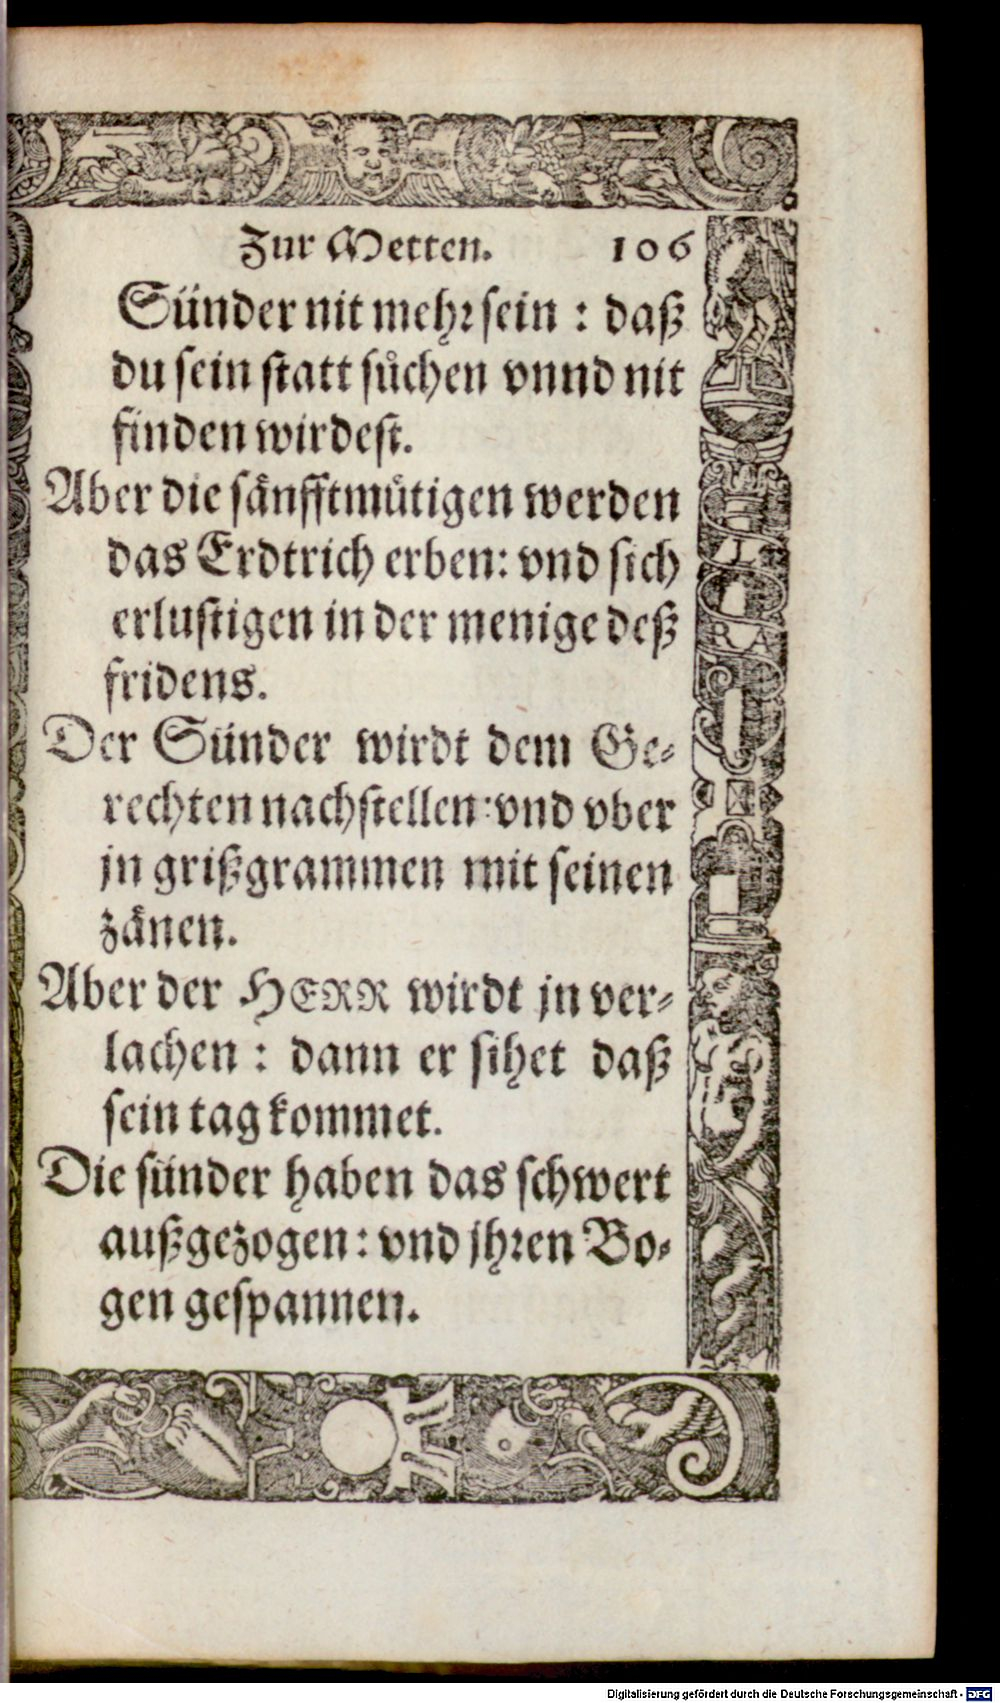 Zur Metten. 106
Sünder nit mehr sein : daß
du sein statt sůchen vnnd nit
finden wirdest.
Aber die sänfftmütigen werden
das Erdtrich erben: vnd sich
erlustigen in der menige deß
fridens.
Der Sünder wirdt dem Ge⸗
rechten nachstellen: vnd vber
jn grißgrammen mit seinen
zänen.
Aber der HERR wirdt jn ver⸗
lachen : dann er sihet daß
sein tag kommet.
Die sünder haben das schwert
außgezogen: vnd jhren Bo⸗
gen gespannen.
Digitalisierung gefördert durch die Deutsche Forschungsgemeinschaft - DFG